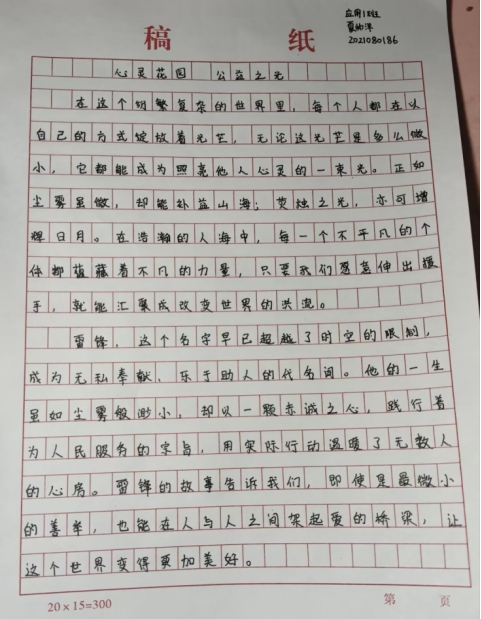 应用1班
2021080186
稿 纸
心灵花园 公益之光
在这个纷繁复杂的世界里，每个人都在以
自己的方式绽放着光芒，无论这光芒是多么微
小，它都能成为照亮他人心灵的一束光。正如
尘雾虽微，却能补益山海；荧烛之光，亦可增
辉日月。在浩瀚的人海中，每一个不平凡的个
体都蕴藏着不凡的力量，只要我们愿意伸出援
手，就能汇聚成改变世界的洪流。
雷锋，这个名字早已超越了时空的限制，
成为无私奉献、乐于助人的代名词。他的一生
虽如尘雾般渺小，却以一颗赤诚之心，践行着
为人民服务的宗旨，用实际行动温暖了无数人
的心房。雷锋的故事告诉我们，即使是最微小
的善举，也能在人与人之间架起爱的桥梁，让
这个世界变得更加美好。
20×15=300
第 页